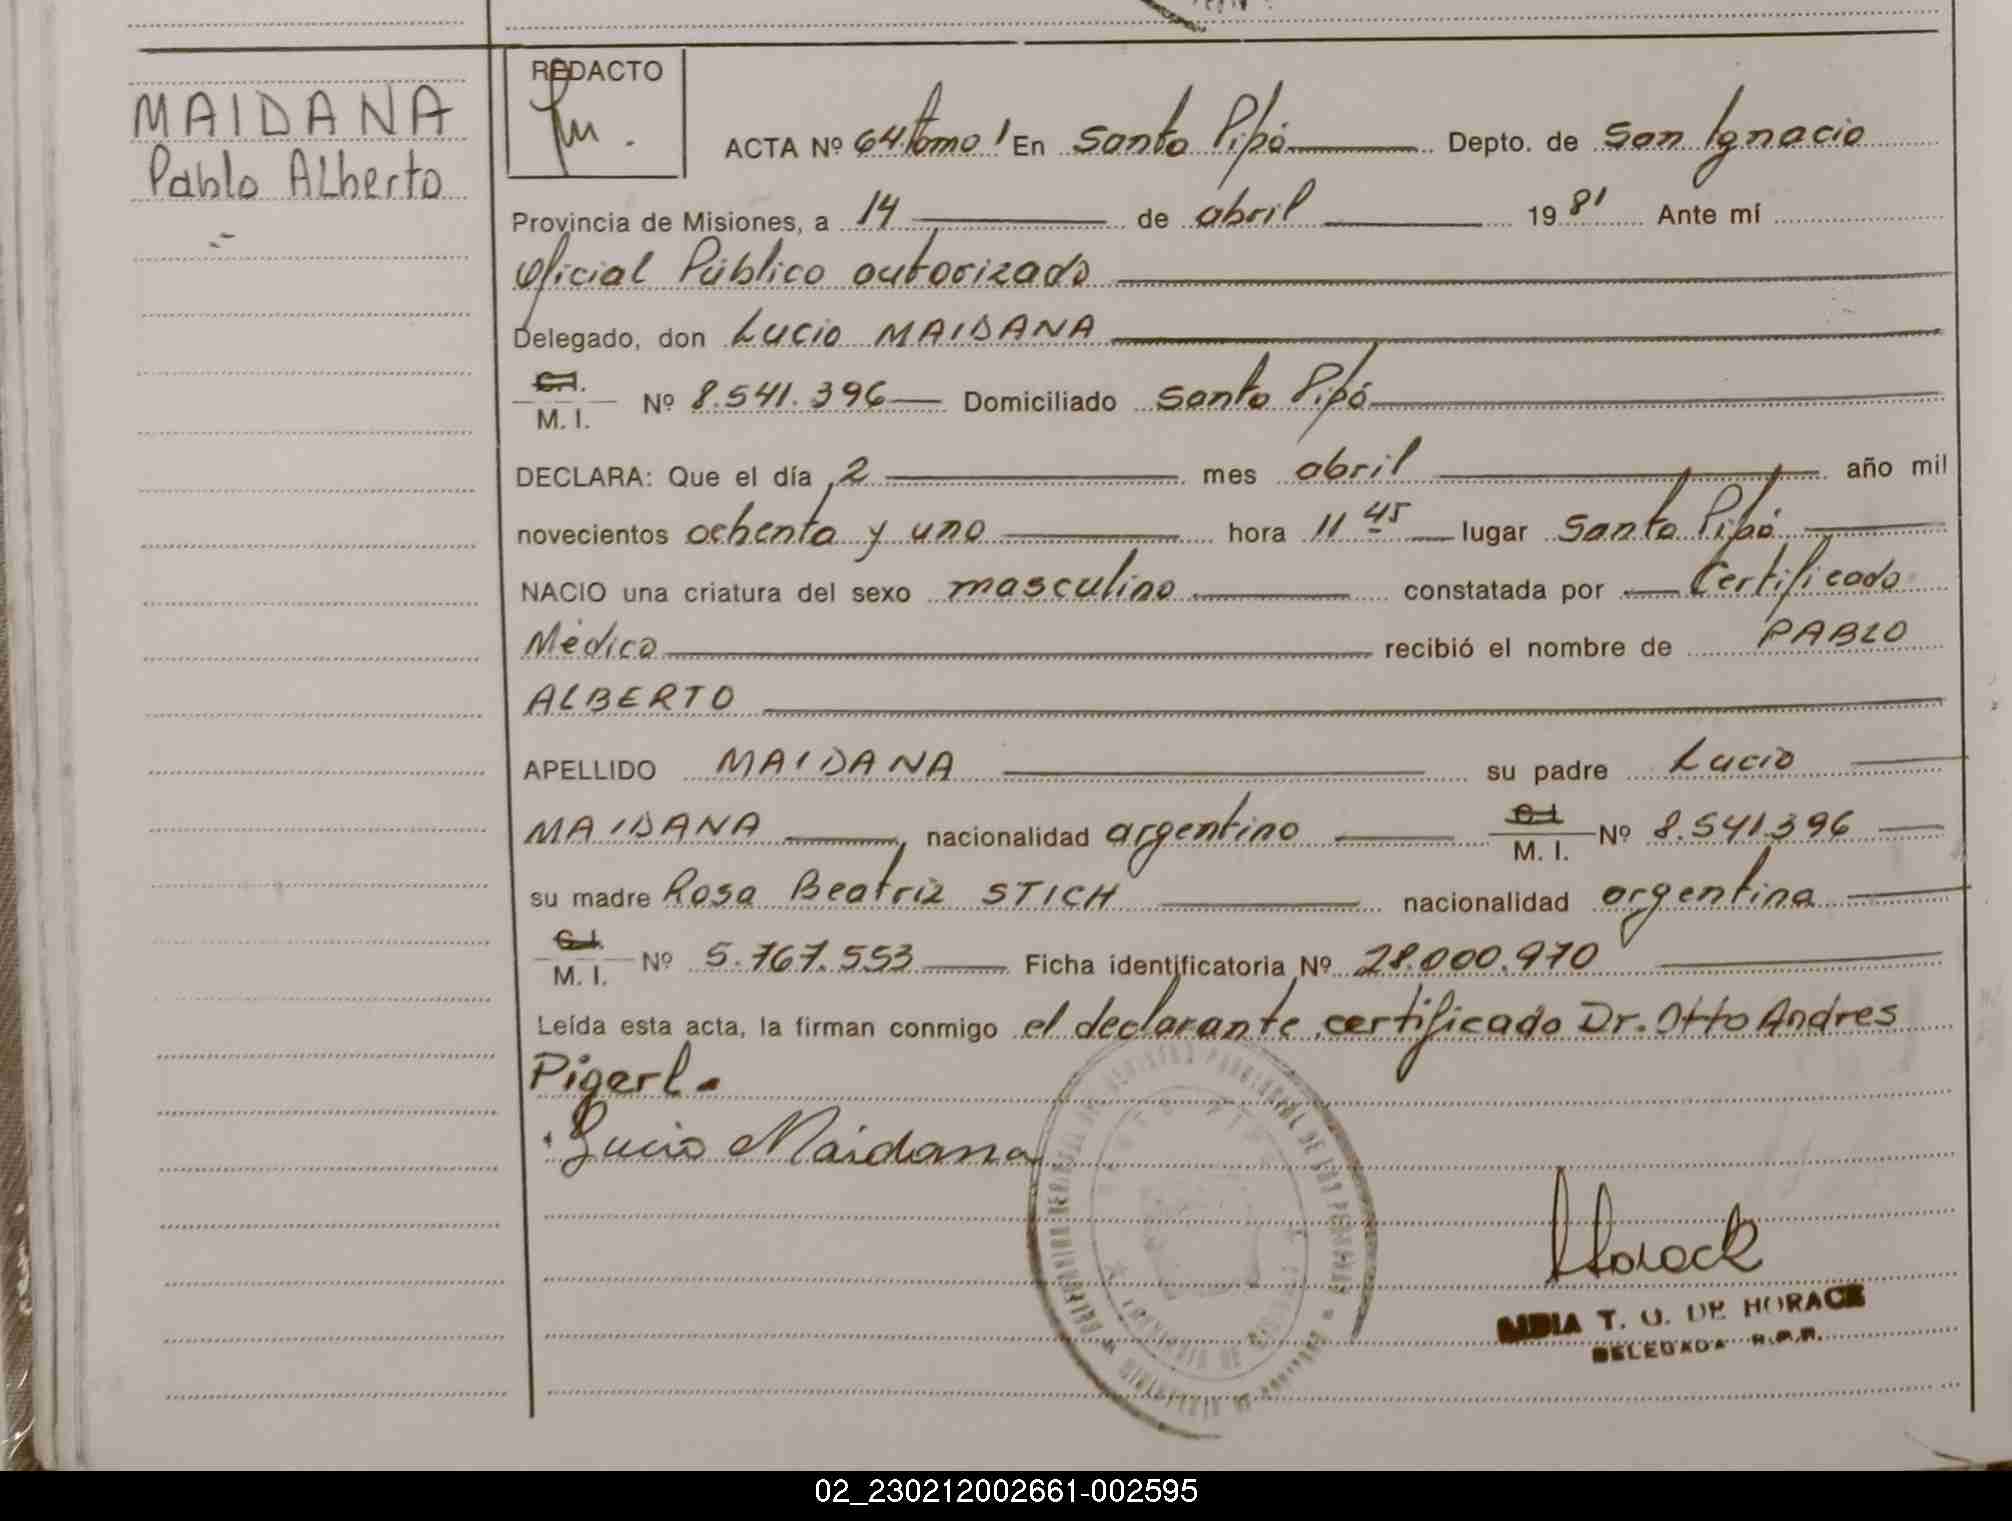 MAIDANA
Pablo Alberto
REDACTO
ACTA Nº 64 tomo 1 En Santo Pipó Depto. de San Ignacio
Provincia de Misiones, a 14 de abril 1981 Ante mí
Oficial Público autorizado
Delegado, don Lucio MAIDANA
C.I. M. I. Nº 8.541.396 Domiciliado Santo Pipó
DECLARA: Que el día 2 mes abril año mil
novecientos ochenta y uno hora 11 45 lugar Santo Pipó
NACIO una criatura del sexo masculino constatada por Certificado
Médico recibió el nombre de PABLO
ALBERTO
APELLIDO MAIDANA su padre Lucio
MAIDANA, nacionalidad argentino C.I. M. I. Nº 8.541.396
su madre Rosa Beatriz STICH nacionalidad argentina
C.I. M. I. Nº 5.767.553 Ficha identificatoria Nº 28.000.970
Leída esta acta, la firman conmigo el declarante, certificado Dr. Otto Andres
Pigerl.
Lucio Maidana
Horack
LIDIA T. G. DE HORACK
DELEGADA R.P.P.
02_230212002661-002595